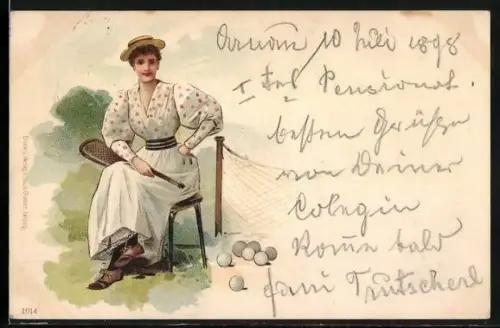 Arnau 10 Juli 1898
I Frl Pensionat.
besten Grüße
von Deiner
Colegin
Kome bald
Fani Trutscherl
1014